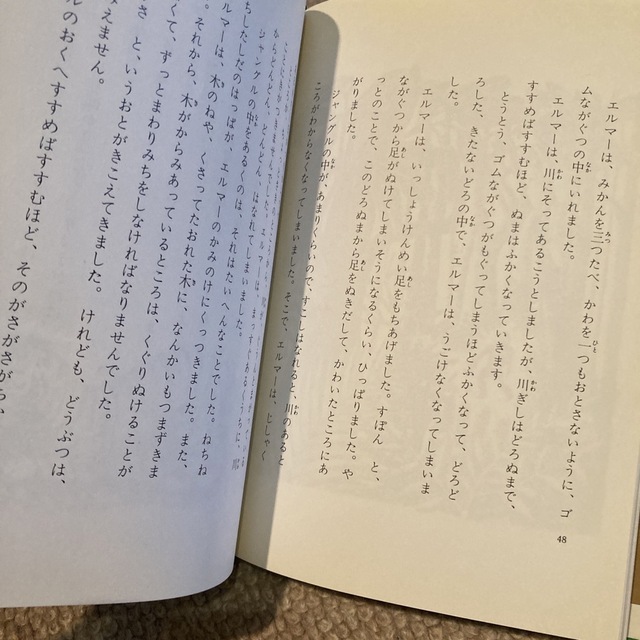 エルマーは、みかんを三つたべ、かわを一つもおとさないように、ゴ
ムながぐつの中にいれました。
エルマーは、川にそってあるこうとしましたが、川ぎしはどろぬまで、
すすめばすすむほど、ぬまはふかくなっていきます。
とうとう、ゴムながぐつがもぐってしまうほどふかくなって、どろど
ろした、きたないどろの中で、エルマーは、うごけなくなってしまいま
した。
エルマーは、いっしょうけんめい足をもちあげました。すぽん と、
ながぐつから足がぬけてしまいそうになるくらい、ひっぱりました。や
っとのことで、このどろぬまから足をぬきだして、かわいたところにあ
がりました。
ジャングルの中が、あまりくらいので、すこしはなれると、川のあると
ころがわからなくなってしまいました。そこで、エルマーは、じしゃく
48
ジャングルの中をあるくのは、それはたいへんなことでした。ねちね
ちしたしだのはっぱが、エルマーのかみのけにくっつきました。また、
エルマーは、木のねや、くさってたおれた木に、なんかいもつまずきま
した。それから、木がからみあっているところは、くぐりぬけることが
なくて、ずっとまわりみちをしなければなりませんでした。
さ と、いうおとがきこえてきました。けれども、どうぶつは、
えません。
ルのおくへすすめばすすむほど、そのがさがさがら、